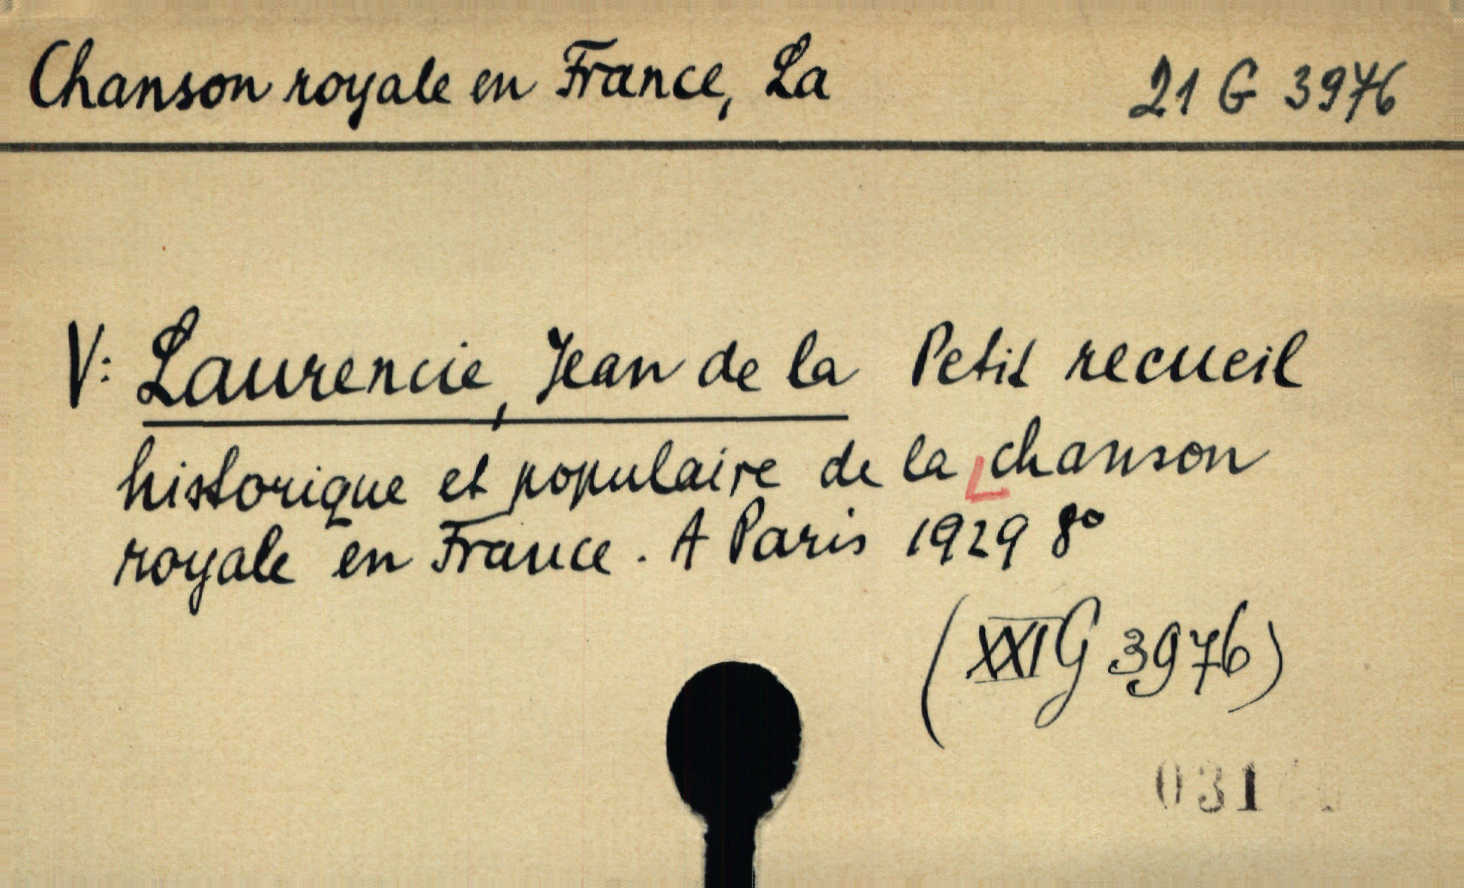 Chanson royale en France, La 21 G 3976
V: Laurencie, Jean de la Petit recueil
historique et populaire de la chanson
royale en France. A Paris 1929 8º
(XXI G 3976)
031